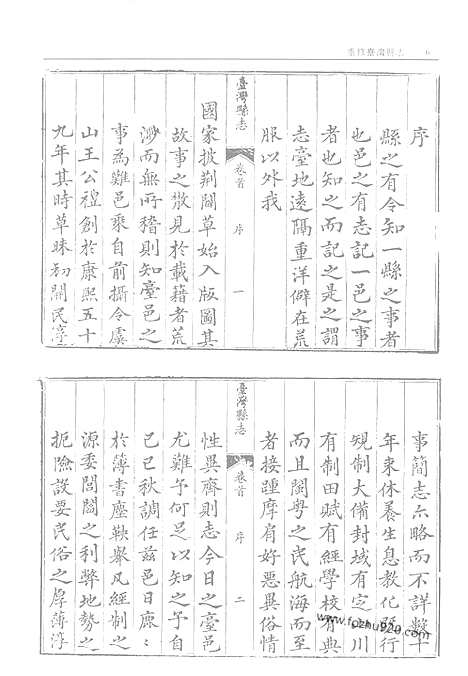 重修臺灣縣志 6
序
縣之有令知一縣之事者
也邑之有志記一邑之事
者也知之而記之是之謂
志臺地遠隔重洋僻在荒
服以外我
臺灣縣志 卷首 序 一
國家披荆闢草始入版圖其
故事之散見於載籍者荒
渺而無所稽則知臺邑之
事為難邑乘自前攝令虞
山王公禮創於康熙五十
九年其時草昧初開民淳
事簡志亦略而不詳數十
年來休養生息教化所行
規制大備封域有定川
有制田賦有經學校有典
而且閩粤之民航海而至
者接踵摩肩好惡異俗情
臺灣縣志 卷首 序 二
性異齊則志今日之臺邑
尤難予何足以知之予自
己巳秋調任茲邑日鹿
於簿書座鞅舉凡經制之
源委閭閻之利弊地勢之
扼險設要民俗之厚薄淳
www.fozhu920.com